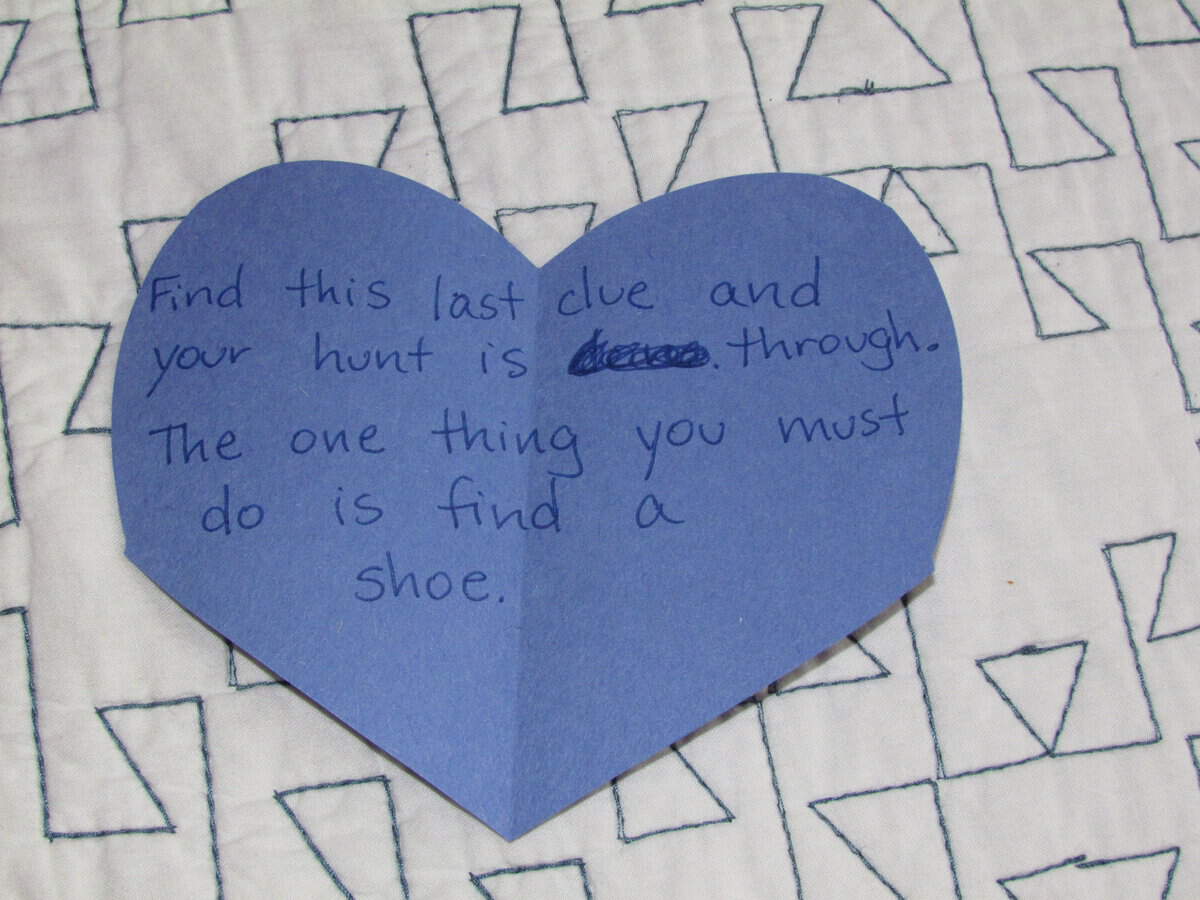 Find this last clue and
your hunt is through.
The one thing you must
do is find a
shoe.